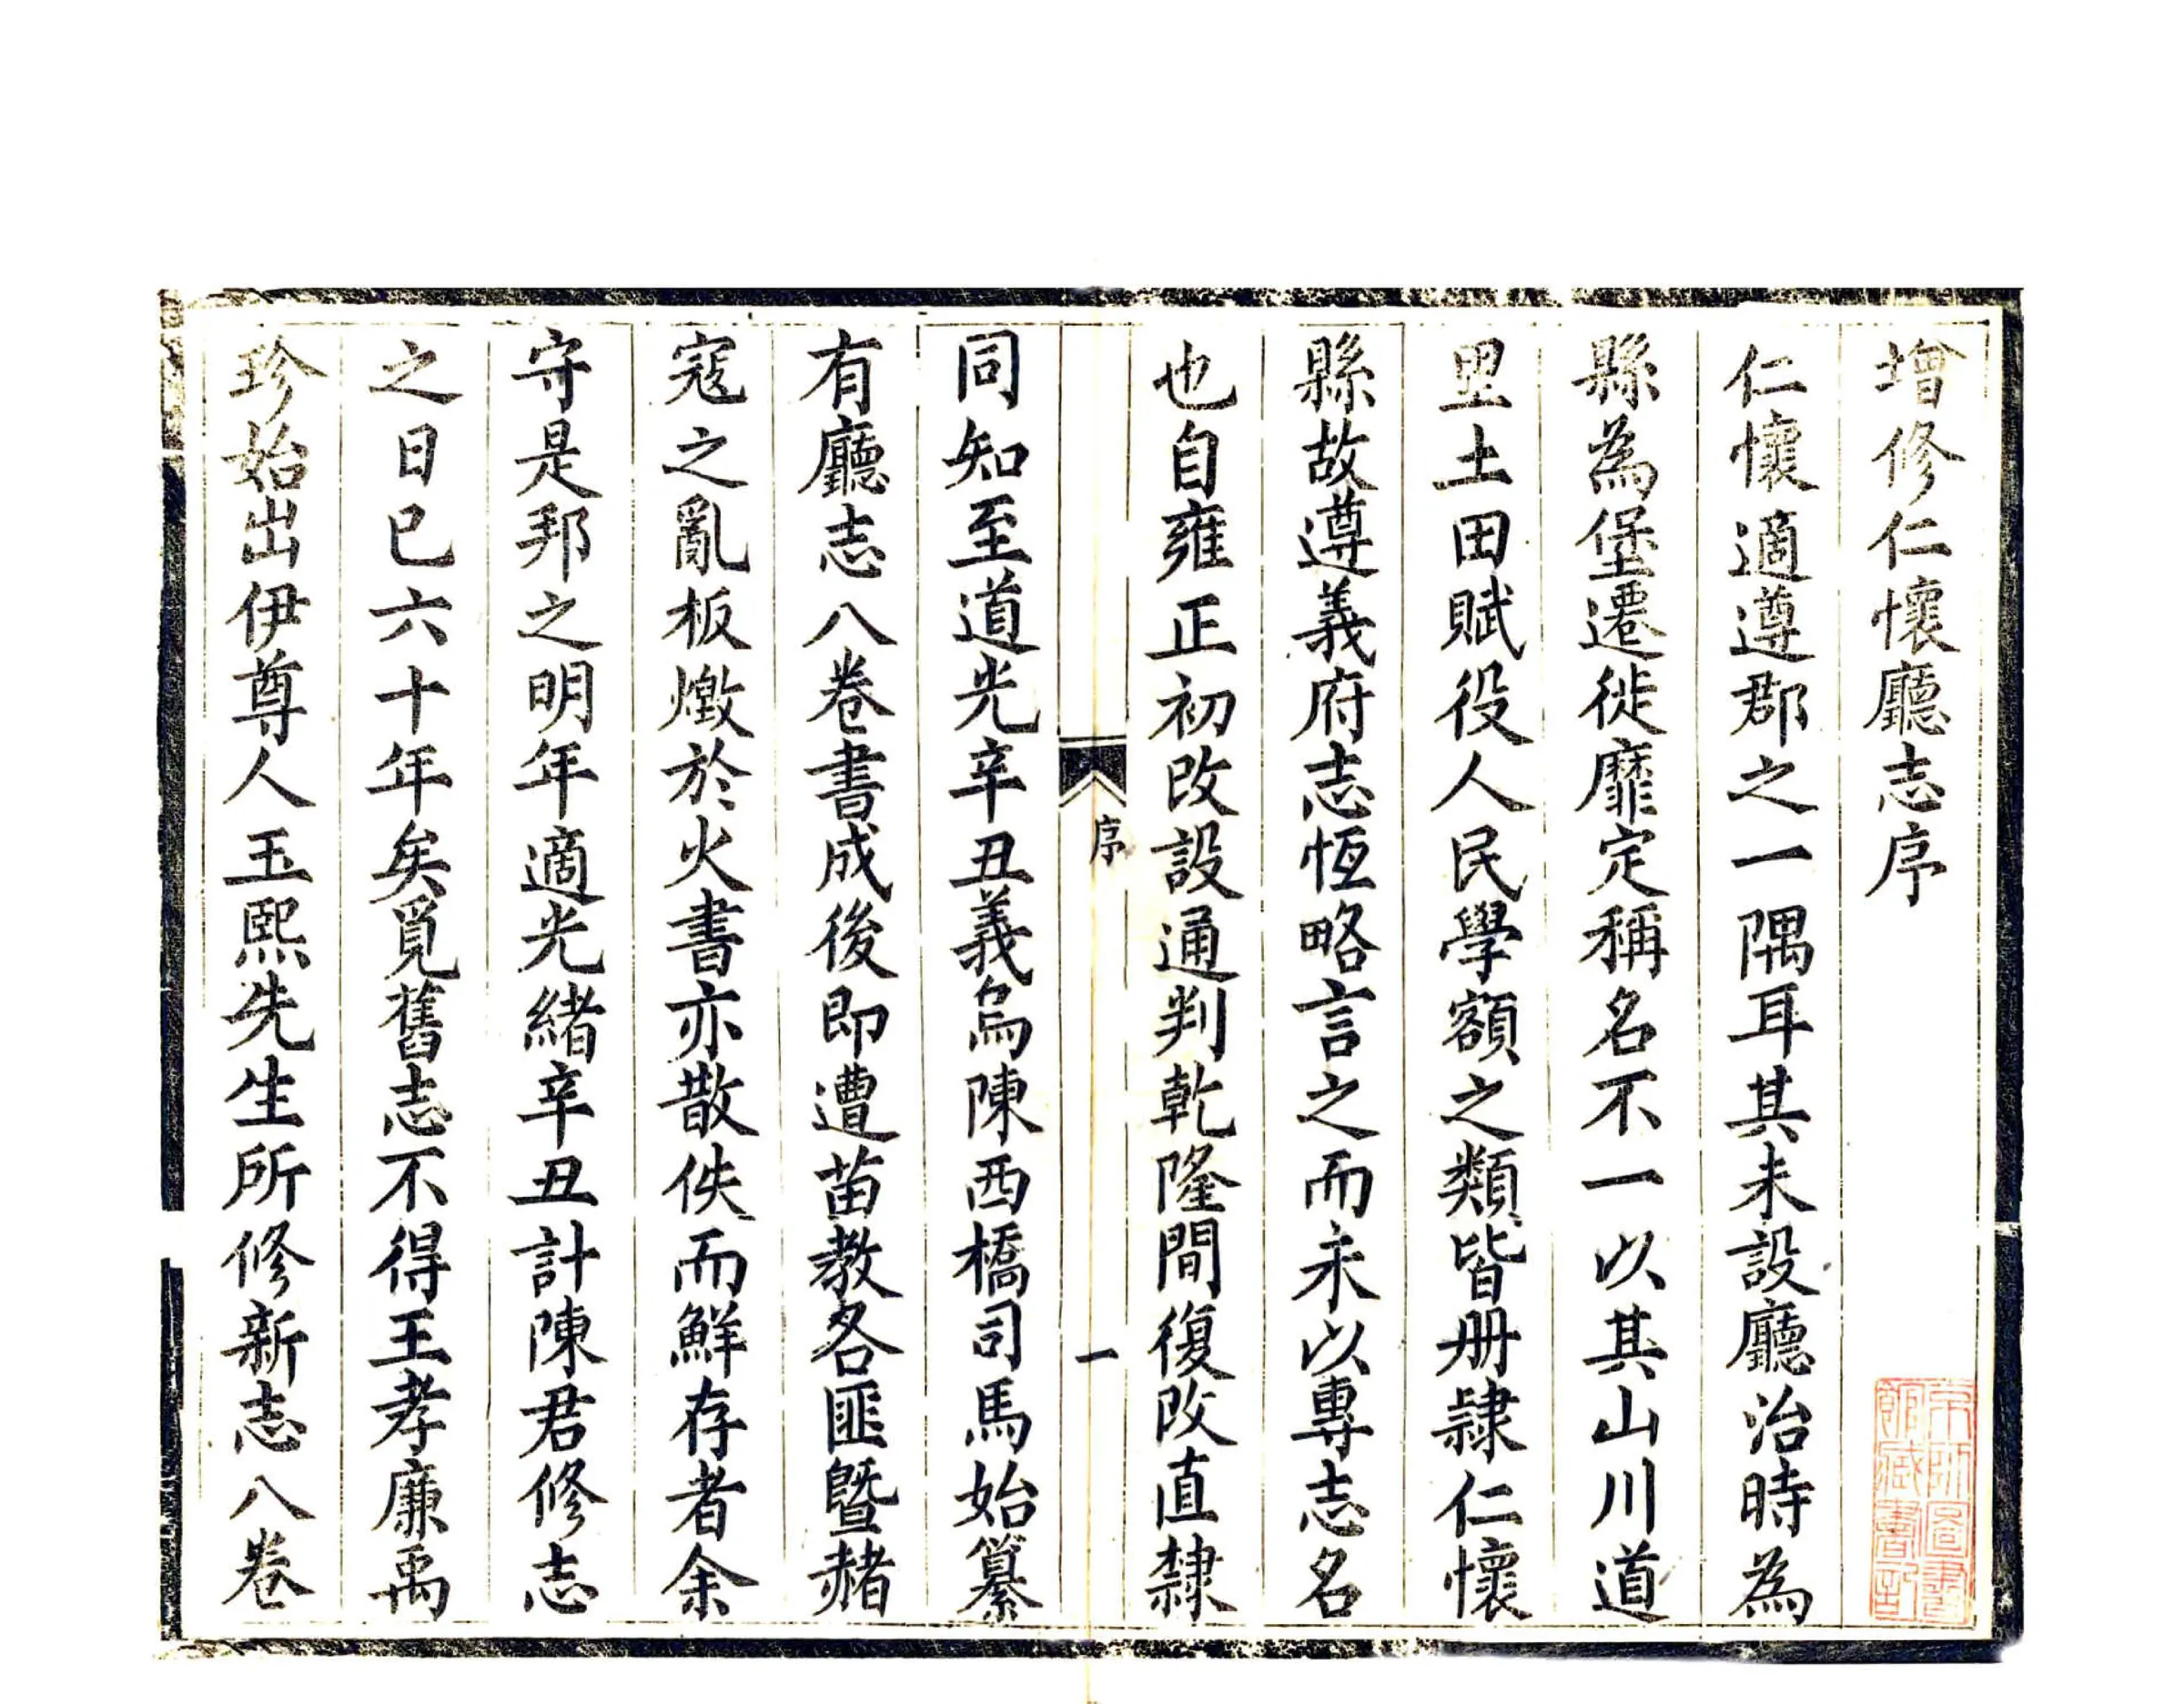 增修仁懷廳志序
仁懷適遵郡之一隅耳其未設廳治時為
縣為堡遷徙靡定稱名不一以其山川道
里土田賦役人民學額之類皆册隸仁懷
縣故遵義府志恆略言之而未以專志名
也自雍正初改設通判乾隆間復改直隸
序
一
同知至道光辛丑義烏陳西橋司馬始纂
有廳志八卷書成後即遭苗教各匪暨赭
寇之亂板燬於火書亦散佚而鮮存者余
守是邦之明年適光緒辛丑計陳君修志
之日已六十年矣覓舊志不得王孝廉禹
珍始出伊尊人玉熙先生所修新志八卷
京師圖書
館藏書記